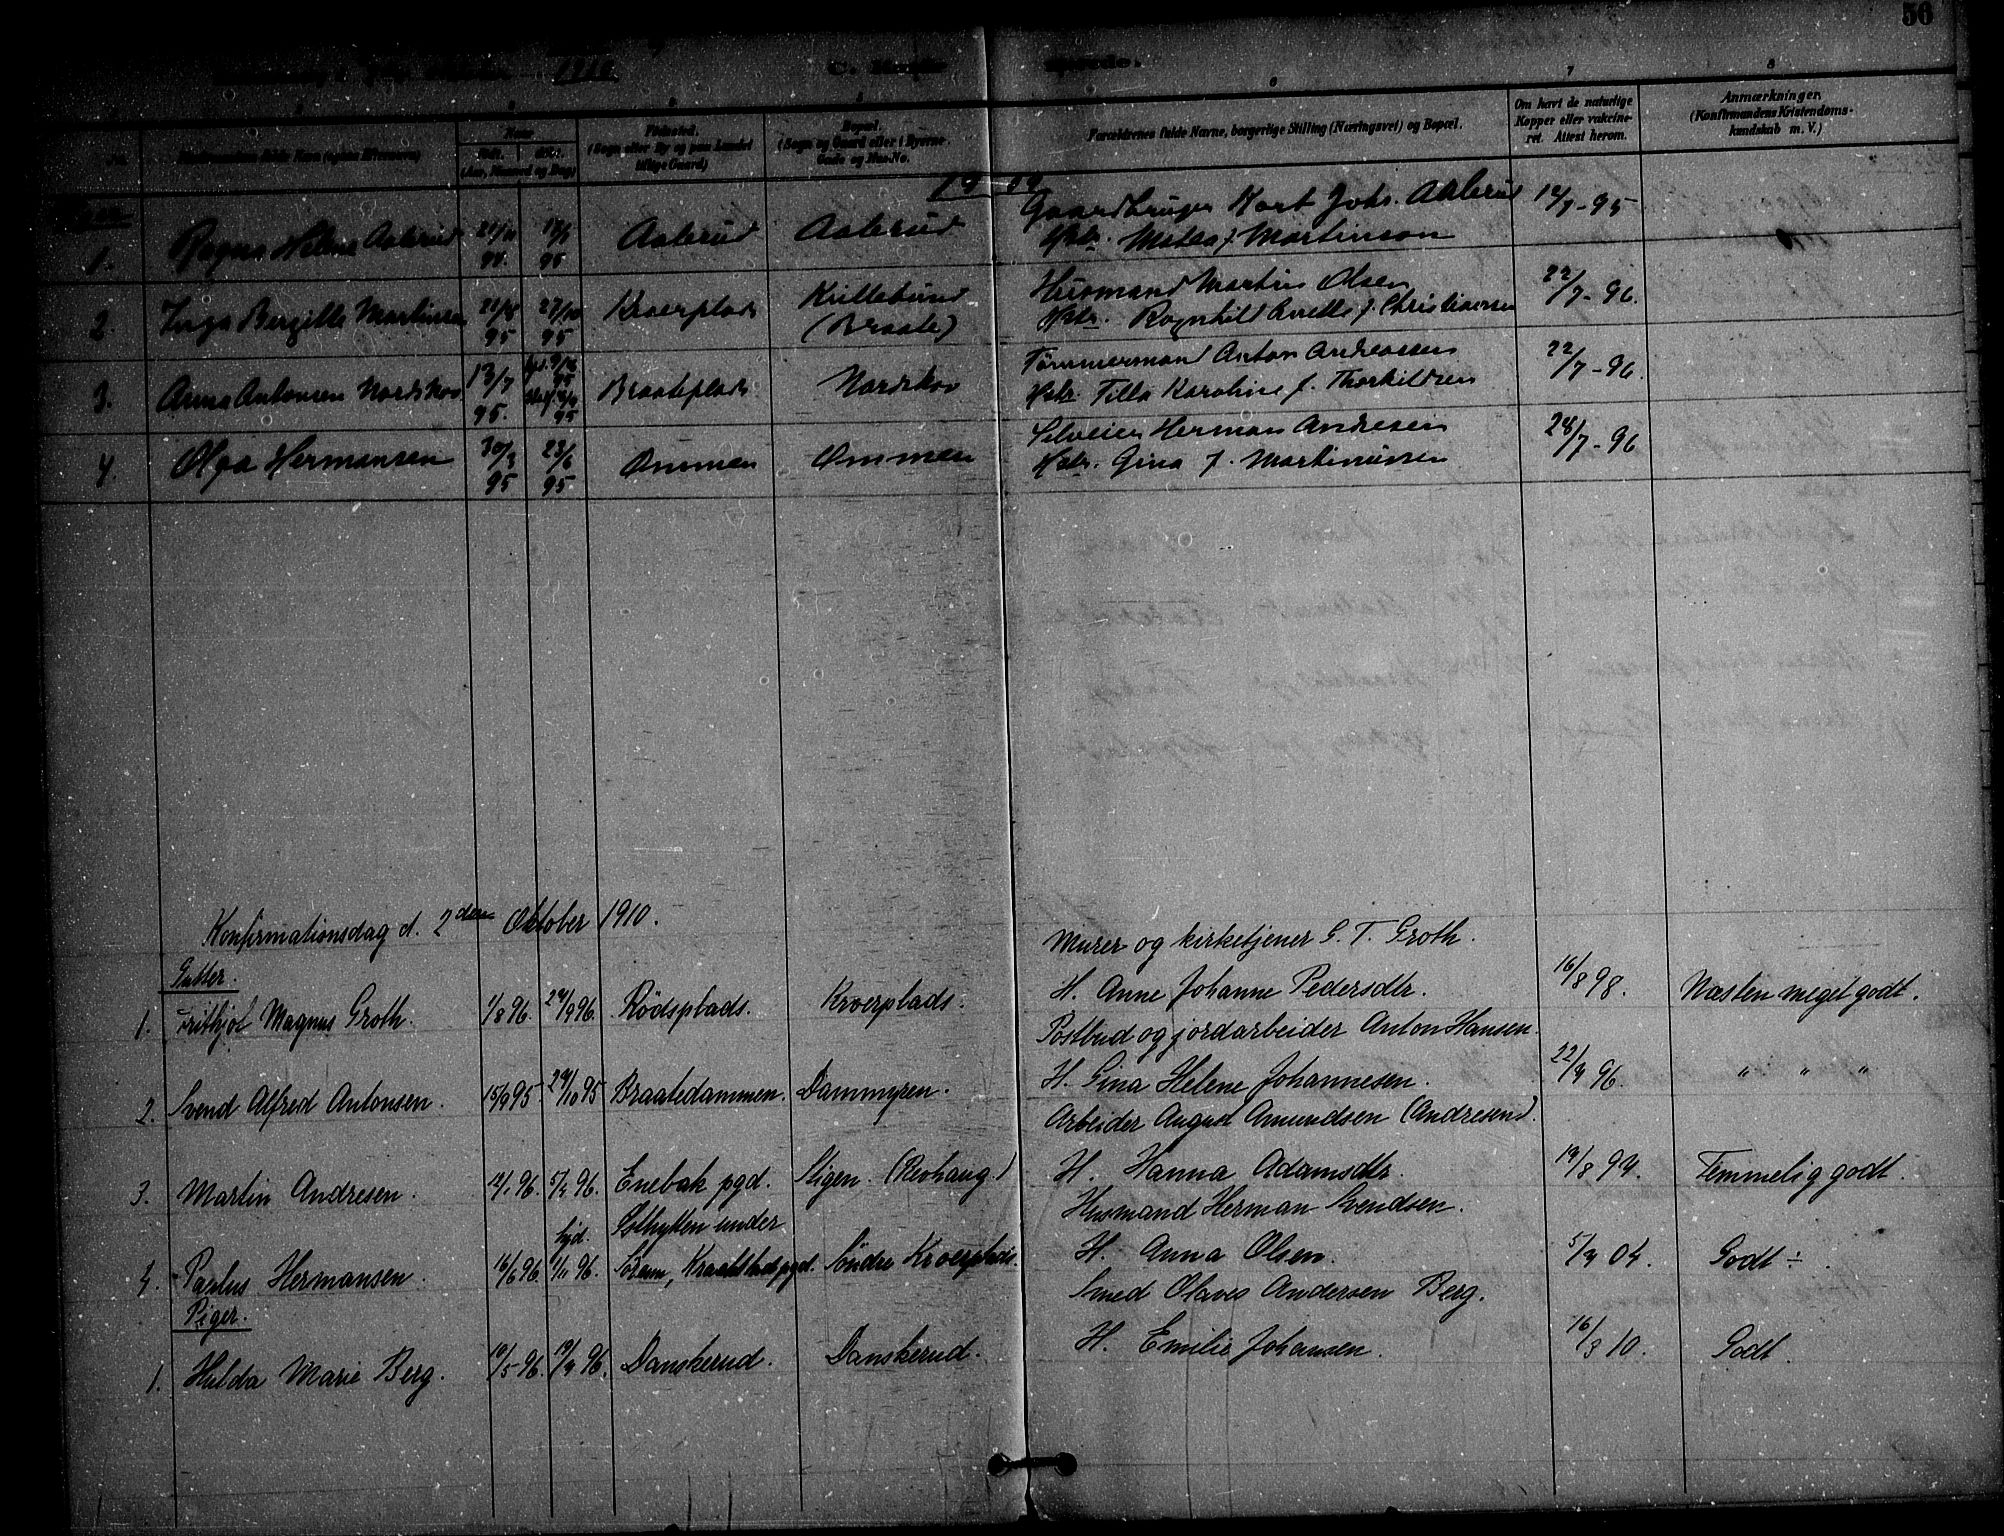 56
1910.
5
6
7
8
Navn
Født.
døbt.
(Aar, Maaned og Dag)
Fødested.
(Sogn eller By og paa Landet
tillige Gaard)
Bopæl.
(Sogn og Gaard eller i Byerne
Gade og Hus-No.
Forældrenes fulde Navne, borgerlige Stilling (Næringsvei) og Bopæl.
Om havt de naturlige
Kopper eller vakcine-
ret. Attest herom.
Anmærkninger.
(Konfirmandens Kristendoms-
kundskab m. V.)
19 09
1. Ragna Helene Aalerud 21/11 94. 13/1 95 Aalerud Aalerud
Gaardbruger Kart Johs. Aalerud
Hstr. Matea f. Martinson 12/7-95
2. Inga Bergitte Martinsen 95 27/10 95 Kroerplads (Braate)
Husmand Martin Olsen
Hstr. Ragnhild f. Christiansen 22/7-96.
3. Anna Antonsen Nordskov 13/7 95. 95 Braateplads Nordskov
Tømmermand Anton Andreassen
Hstr. Tilla Karoline f. Thorkildsen 22/7-96.
4. Olga Hermansen 30/3 95 23/6 95. Ommen Ommen
Selveier Herman Andresen
Hstr. Gina f. Martinussen 28/7-96
Konfirmationsdag d. 2den Oktober 1910.
Gutter.
Murer og kirketjener G. T. Groth.
1. Frithjof Magnus Groth. 1/8 96. 24/9 96. Rødsplads. Kroerplads. H. Anne Johanne Pedersdtr. 16/8 98. Næsten meget godt.
Postbud og jordarbeider Anton Hansen.
2. Svend Alfred Antonsen. 15/9 95. 24/10 95 Braatedammen. Dammyren. H. Gina Helene Johannesen. 22/9 96. " " "
Arbeider August Amundsen (Andresen).
3. Martin Andresen. 12/1 96. 5/4 96. Enebak pgd. Stigen. (Revhaug.) H. Hanna Adamsdtr. 19/8 94. Temmelig godt.
Husmand Herman Svendsen.
hjd. Sothytten under
4. Paulus Hermansen. 16/6 96. 1/11 96. Kraakstad pgd. Søndre Kroerplads. H. Anna Olsen. 5/9 04. Godt ÷.
Piger.
Smed Olaves Andersen Berg.
1. Hulda Marie Berg. 10/5 96. 19/9 96. Danskerud. Danskerud. H. Emilie Johansen. 16/3 10. Godt.